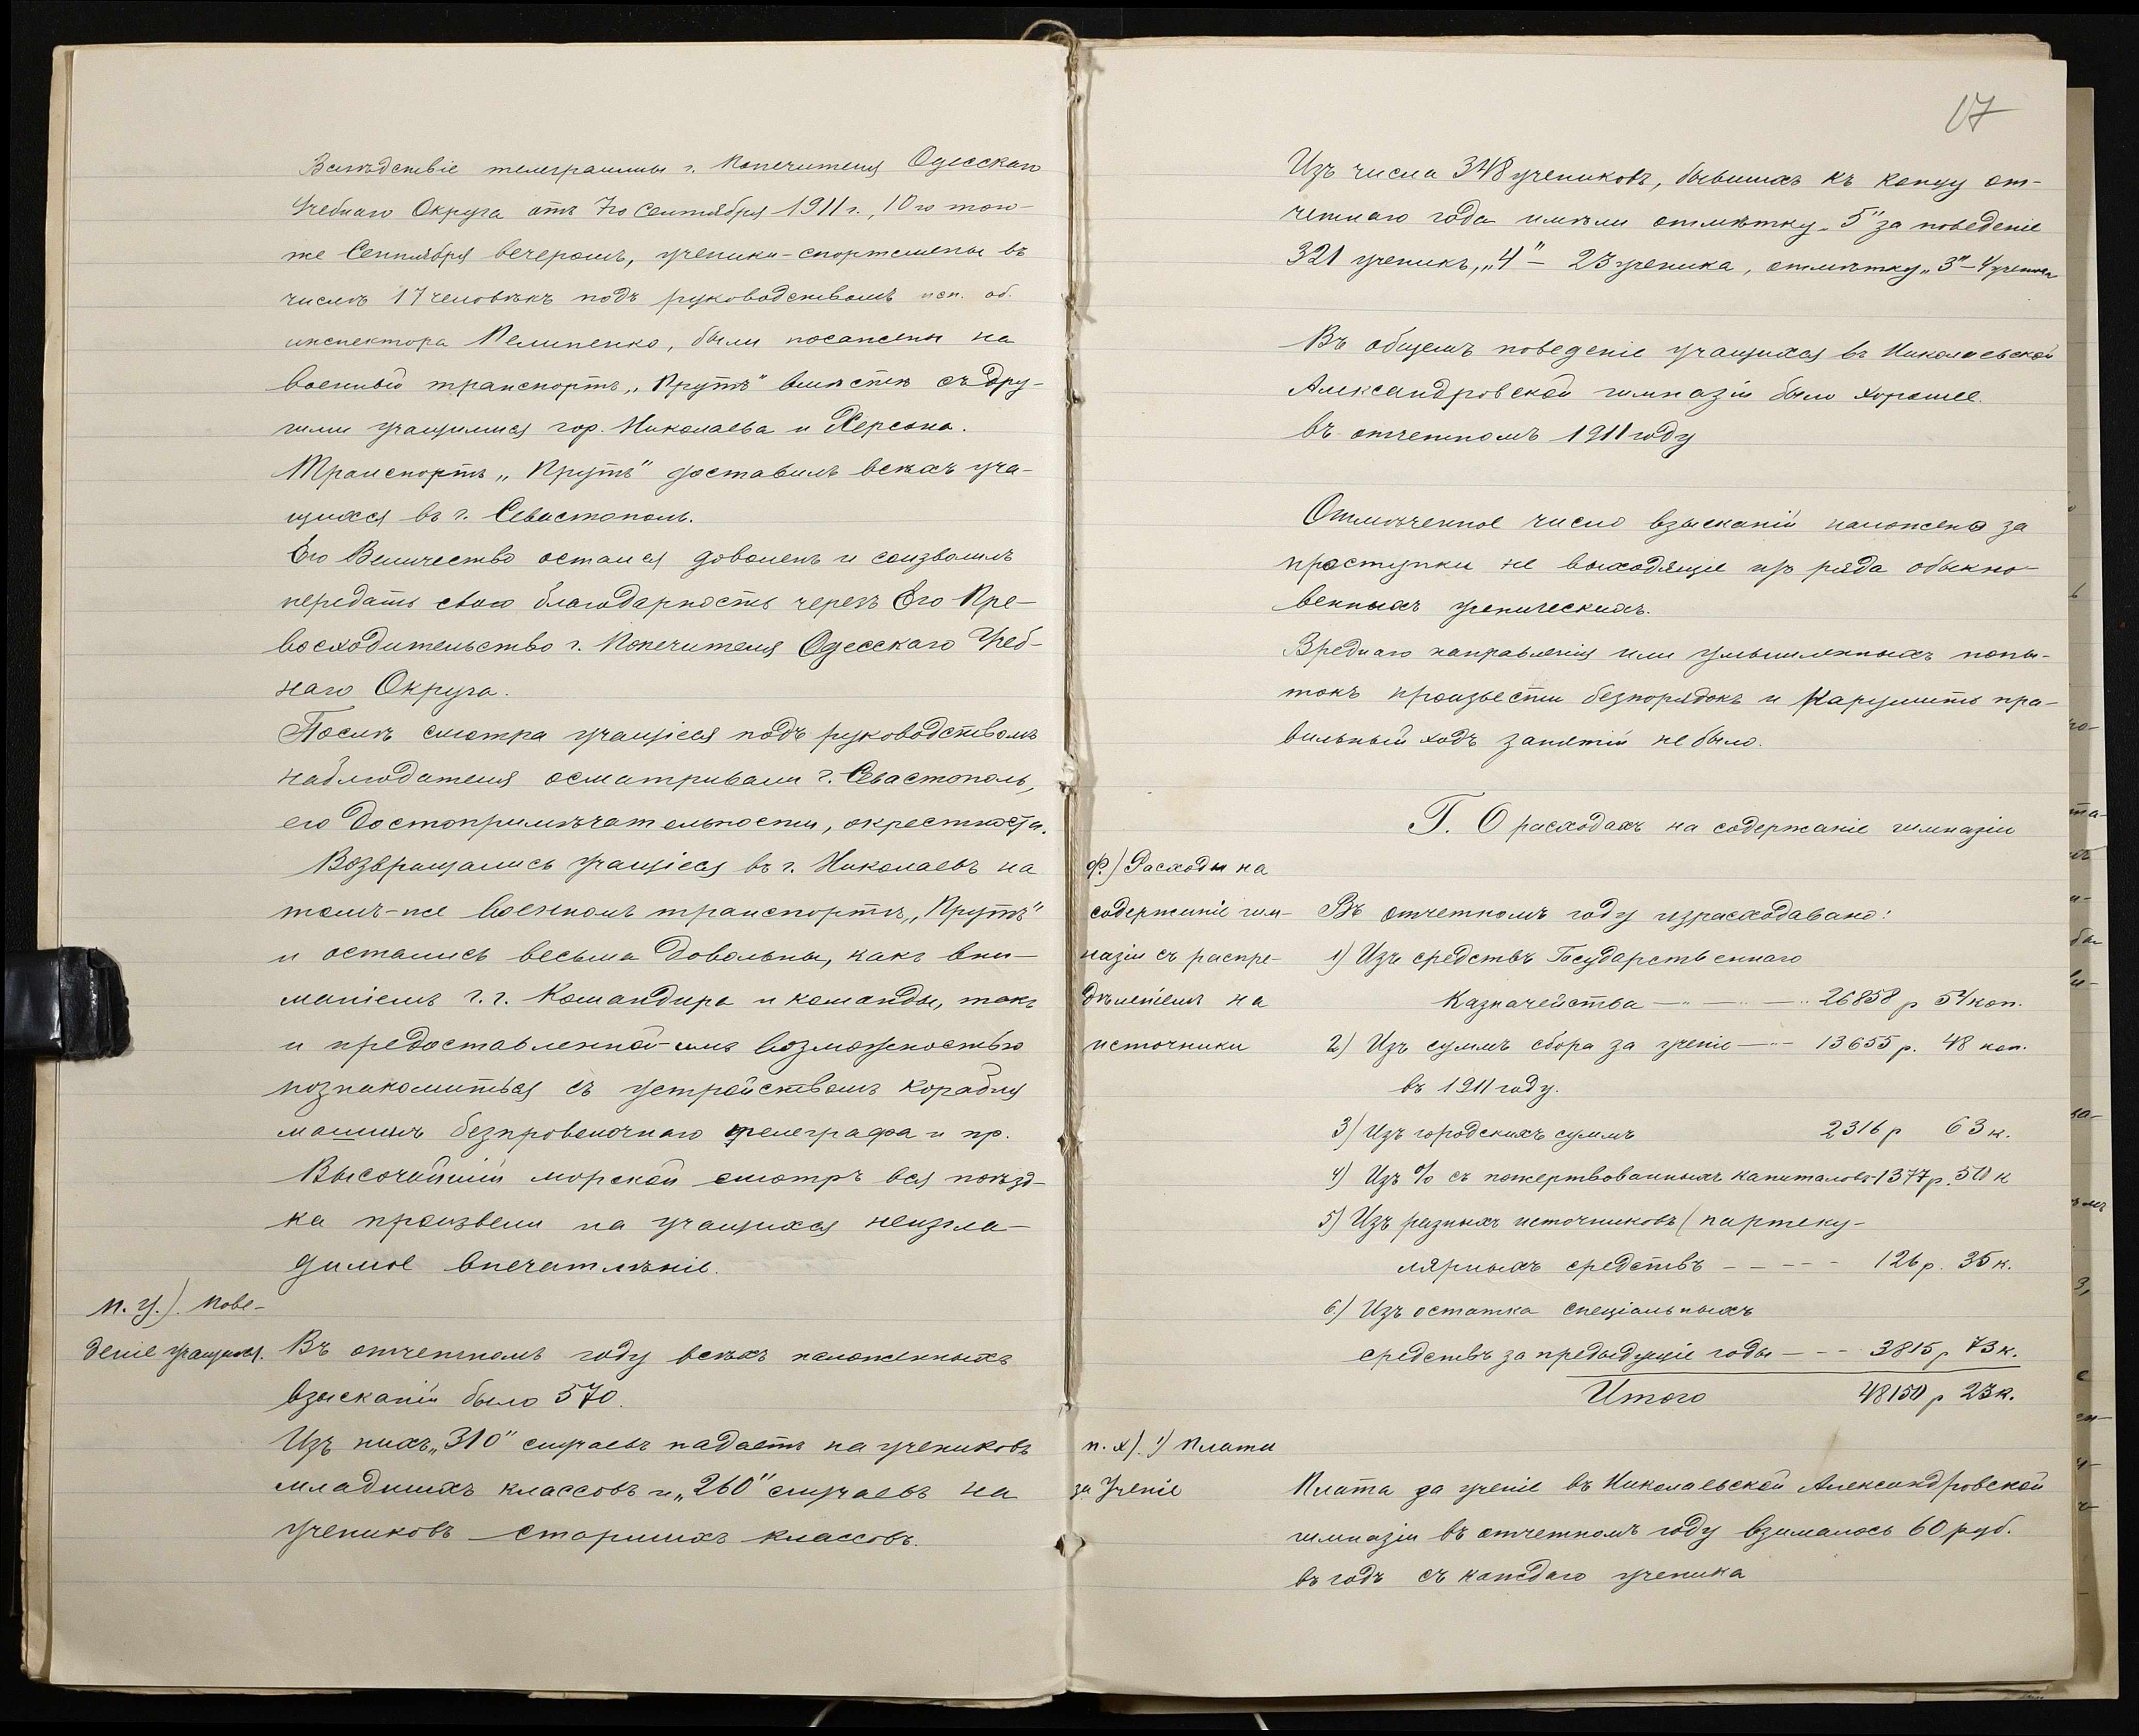 Вслѣдствіе телеграммы г. Попечителя Одесскаго
Учебнаго Округа отъ 7го Сентября 1911 г., 10го того-
же Сентября вечеромъ, ученики-спортсмены въ
числѣ 17 человѣкъ подъ руководствомъ исп. об.
инспектора Пелипенко, были посажены на
военный транспортъ „Прутъ" вмѣстѣ съ дру-
гими учащимися гор. Николаева и Херсона.
Транспортъ „Прутъ" доставилъ всѣхъ уча-
щихся въ г. Севастополь.
Его Величество остался доволенъ и соизволилъ
передать свою благодарность черезъ Его Пре-
восходительство г. Попечителя Одесскаго Учеб-
наго Округа.
Послѣ смотра учащіеся подъ руководствомъ
наблюдателя осматривали г. Севастополь,
его достопримѣчательности, окрестности.
Возвращались учащіеся въ г. Николаевъ на
томъ-же военномъ транспортѣ „Прутъ"
и остались весьма довольны, какъ вни-
маніемъ г.г. Командира и команды, такъ
и предоставленной-имъ возможностью
познакомиться съ устройствомъ корабля
машинъ безпроволочнаго телеграфа и пр.
Высочайшій морской смотръ вся поѣзд-
ка произвели на учащихся неизгла-
димое впечатлѣніе.
п. У.). Пове-
деніе учащихся. Въ отчетномъ году всѣхъ наложенныхъ
взысканій было 570.
Изъ нихъ „310" случаевъ падаетъ на учениковъ
младшихъ классовъ и „260" случаевъ на
учениковъ старшихъ классовъ.
17
Изъ числа 348 учениковъ, бывшихъ къ концу от-
четнаго года имѣли отмѣтку „5" за поведеніе
321 ученикъ, „4" – 23 ученика, отмѣтку „3" – 4 ученика
Въ общемъ поведеніе учащихся въ Николаевской
Александровской гимназіи было хорошее.
въ отчетномъ 1911 году
Отмѣченное число взысканій наложено за
проступки не выходящіе изъ ряда обыкно-
венныхъ ученическихъ.
Вреднаго направленія или умышленныхъ попы-
токъ произвести безпорядокъ и нарушить пра-
вильный ходъ занятій не было.
Г. О расходахъ на содержаніе гимназіи
Ф.) Расходы на
содержаніе гим-
назіи съ распре-
дѣленіемъ на
источники
Въ отчетномъ году израсходовано:
1) Изъ средствъ Государственнаго
Казначейства — 26858 р 54 коп.
2) Изъ суммъ сбора за ученіе — 13655 р. 48 коп.
въ 1911 году.
3) Изъ городскихъ суммъ 2316 р 63 к.
4) Изъ % съ пожертвованныхъ капиталовъ 1377 р. 50 к
5) Изъ разныхъ источниковъ (партеку-
лярныхъ средствъ – – – – 126 р. 35 к.
6.) Изъ остатка спеціальныхъ
средствъ за предыдущіе годы – – – 3815 р 73 к.
Итого 48150 р 23 к.
п. Х). 1) Плата
за Ученіе
Плата за ученіе въ Николаевской Александровской
гимназіи въ отчетномъ году взималось 60 руб.
въ годъ съ каждаго ученика